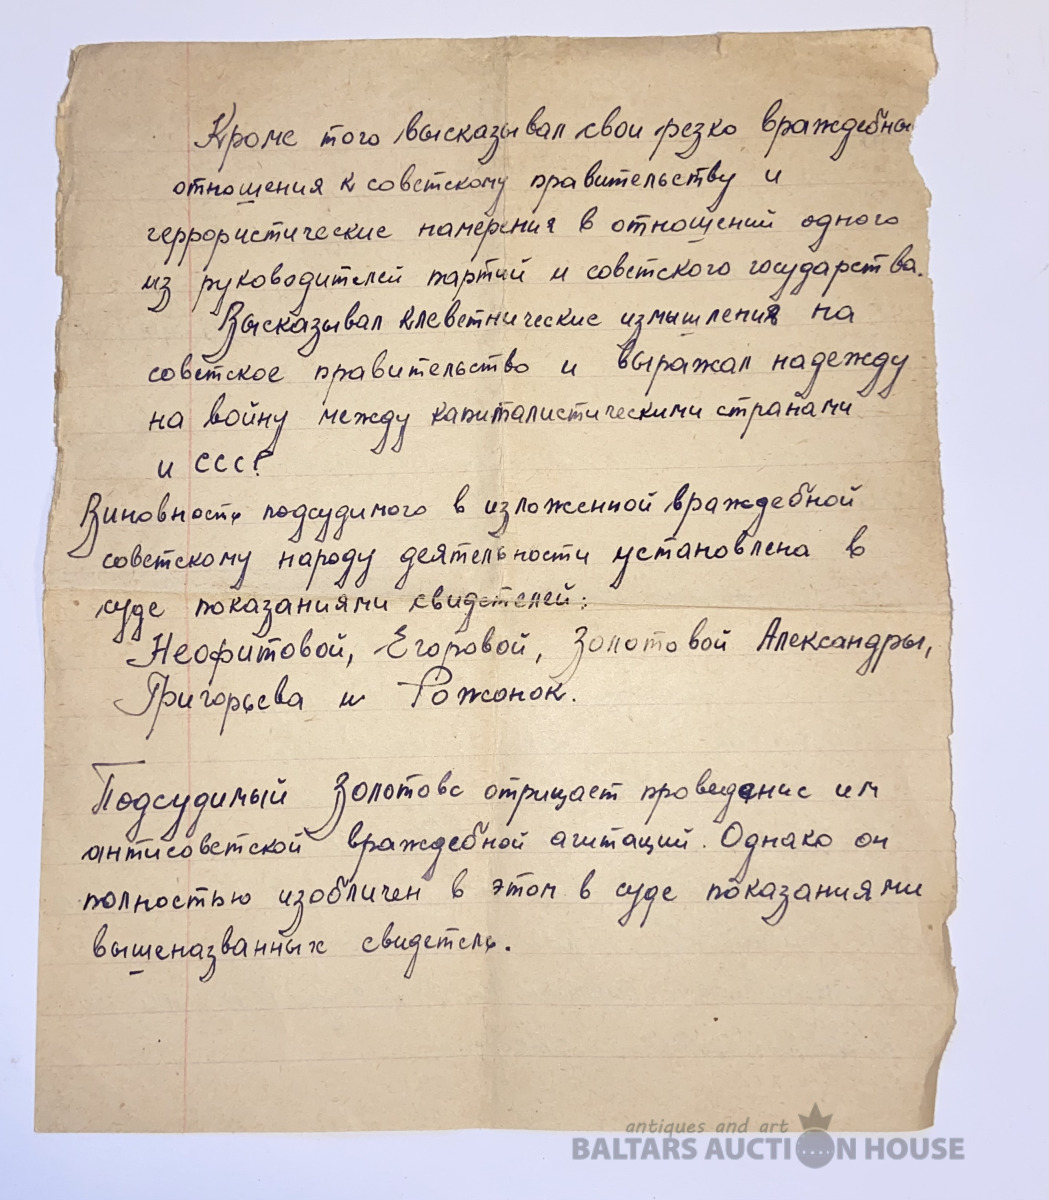 Кроме того высказывал свои резко враждебны
отношения к советскому правительству и
террористические намерения в отношений одного
из руководителей партий и советского государства.
Высказывал клеветнические измышления на
советское правительство и выражал надежду
на войну между капиталистическими странами
и СССР
Виновность подсудимого в изложенной враждебной
советскому народу деятельности установлена в
суде показаниями свидетелей:
Неофитовой, Егоровой, Золотовой Александры,
Григорьева и Рожонок.
Подсудимый Золотовс отрицает проведение им
антисоветской враждебной агитаций. Однако он
полностью изобличен в этом в суде показаниями
вышеназванных свидетель.
antiques and art
BALTARS AUCTION HOUSE